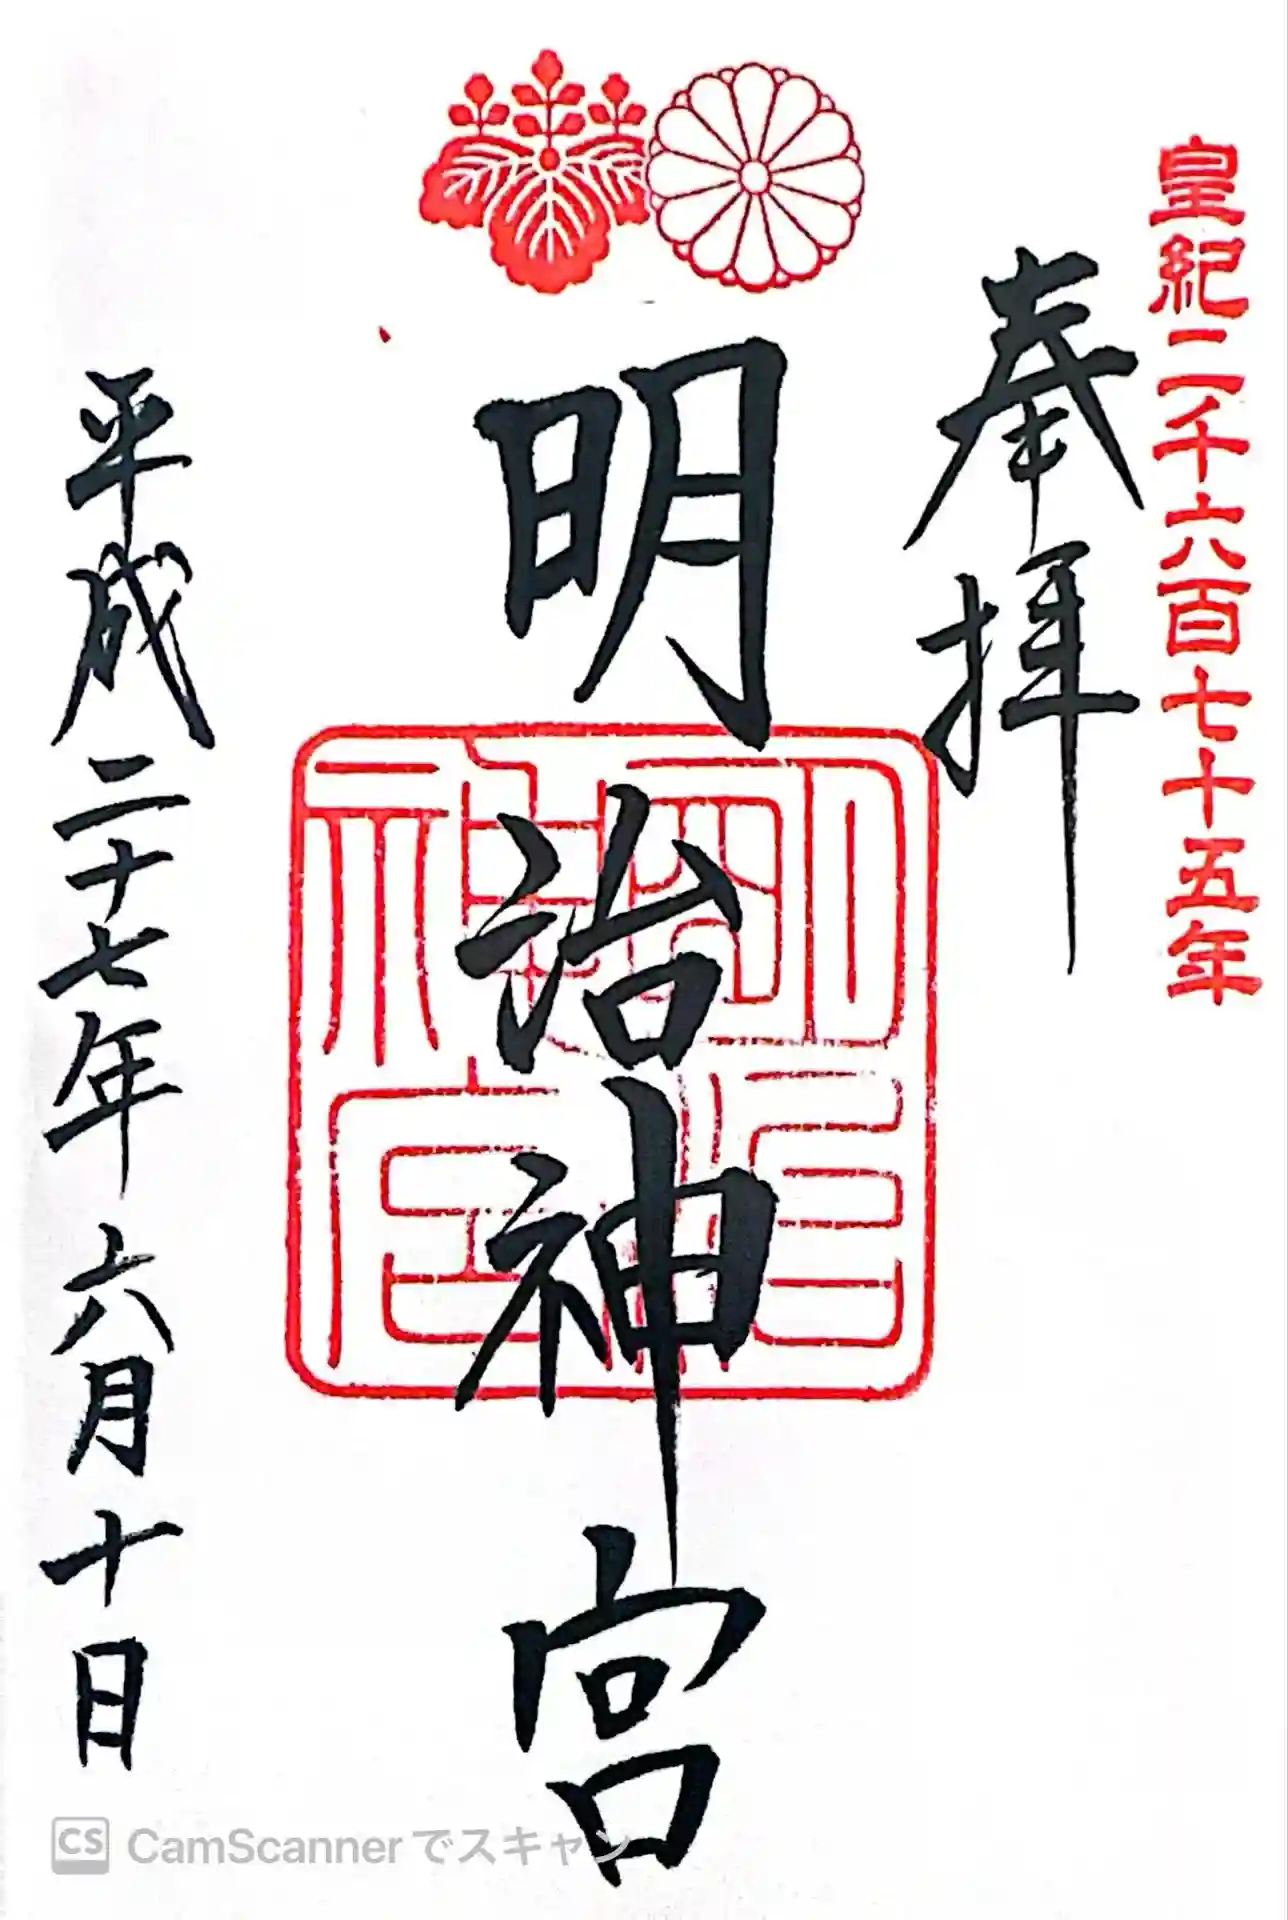 皇紀二千六百七十五年
奉拝
明治神宮
明治神宮
平成二十七年六月十日
CS CamScannerでスキャン